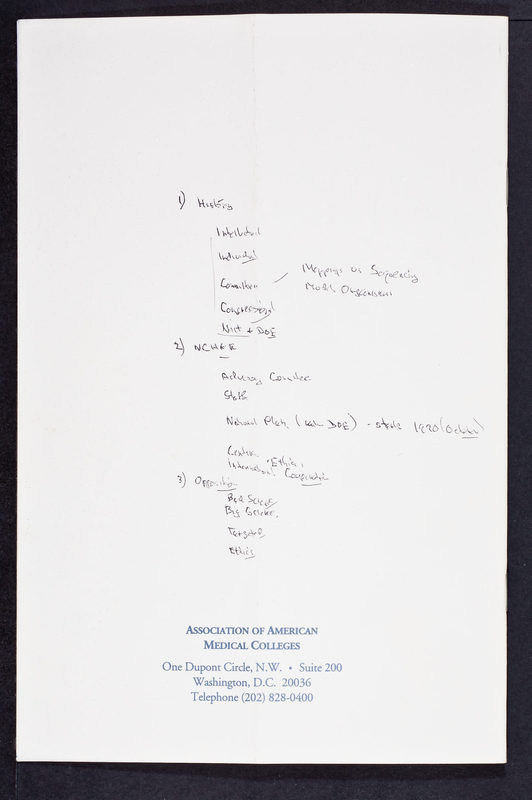 1) History
Intellectual
Individual
Committee / Mapping vs Sequencing
Model Organisms
Congressional
NIH + DOE
2) NCHGR
Advisory Committee
Staff
National Plan (with DOE) - starts 1990 (October)
Centers, Ethics,
International Cooperation
3) Opposition
Bad Science
Big Science,
Targeted
Ethics
ASSOCIATION OF AMERICAN
MEDICAL COLLEGES
One Dupont Circle, N.W. • Suite 200
Washington, D.C. 20036
Telephone (202) 828-0400